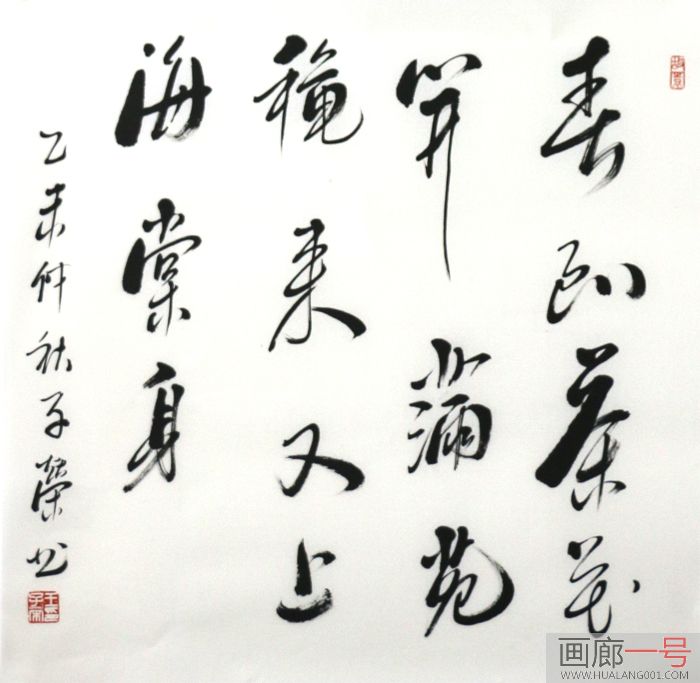 春到茶花
開滿苑
穐来又上
海棠身
乙未仲秋子榮书
画廊一号
WWW.HUALANG001.COM